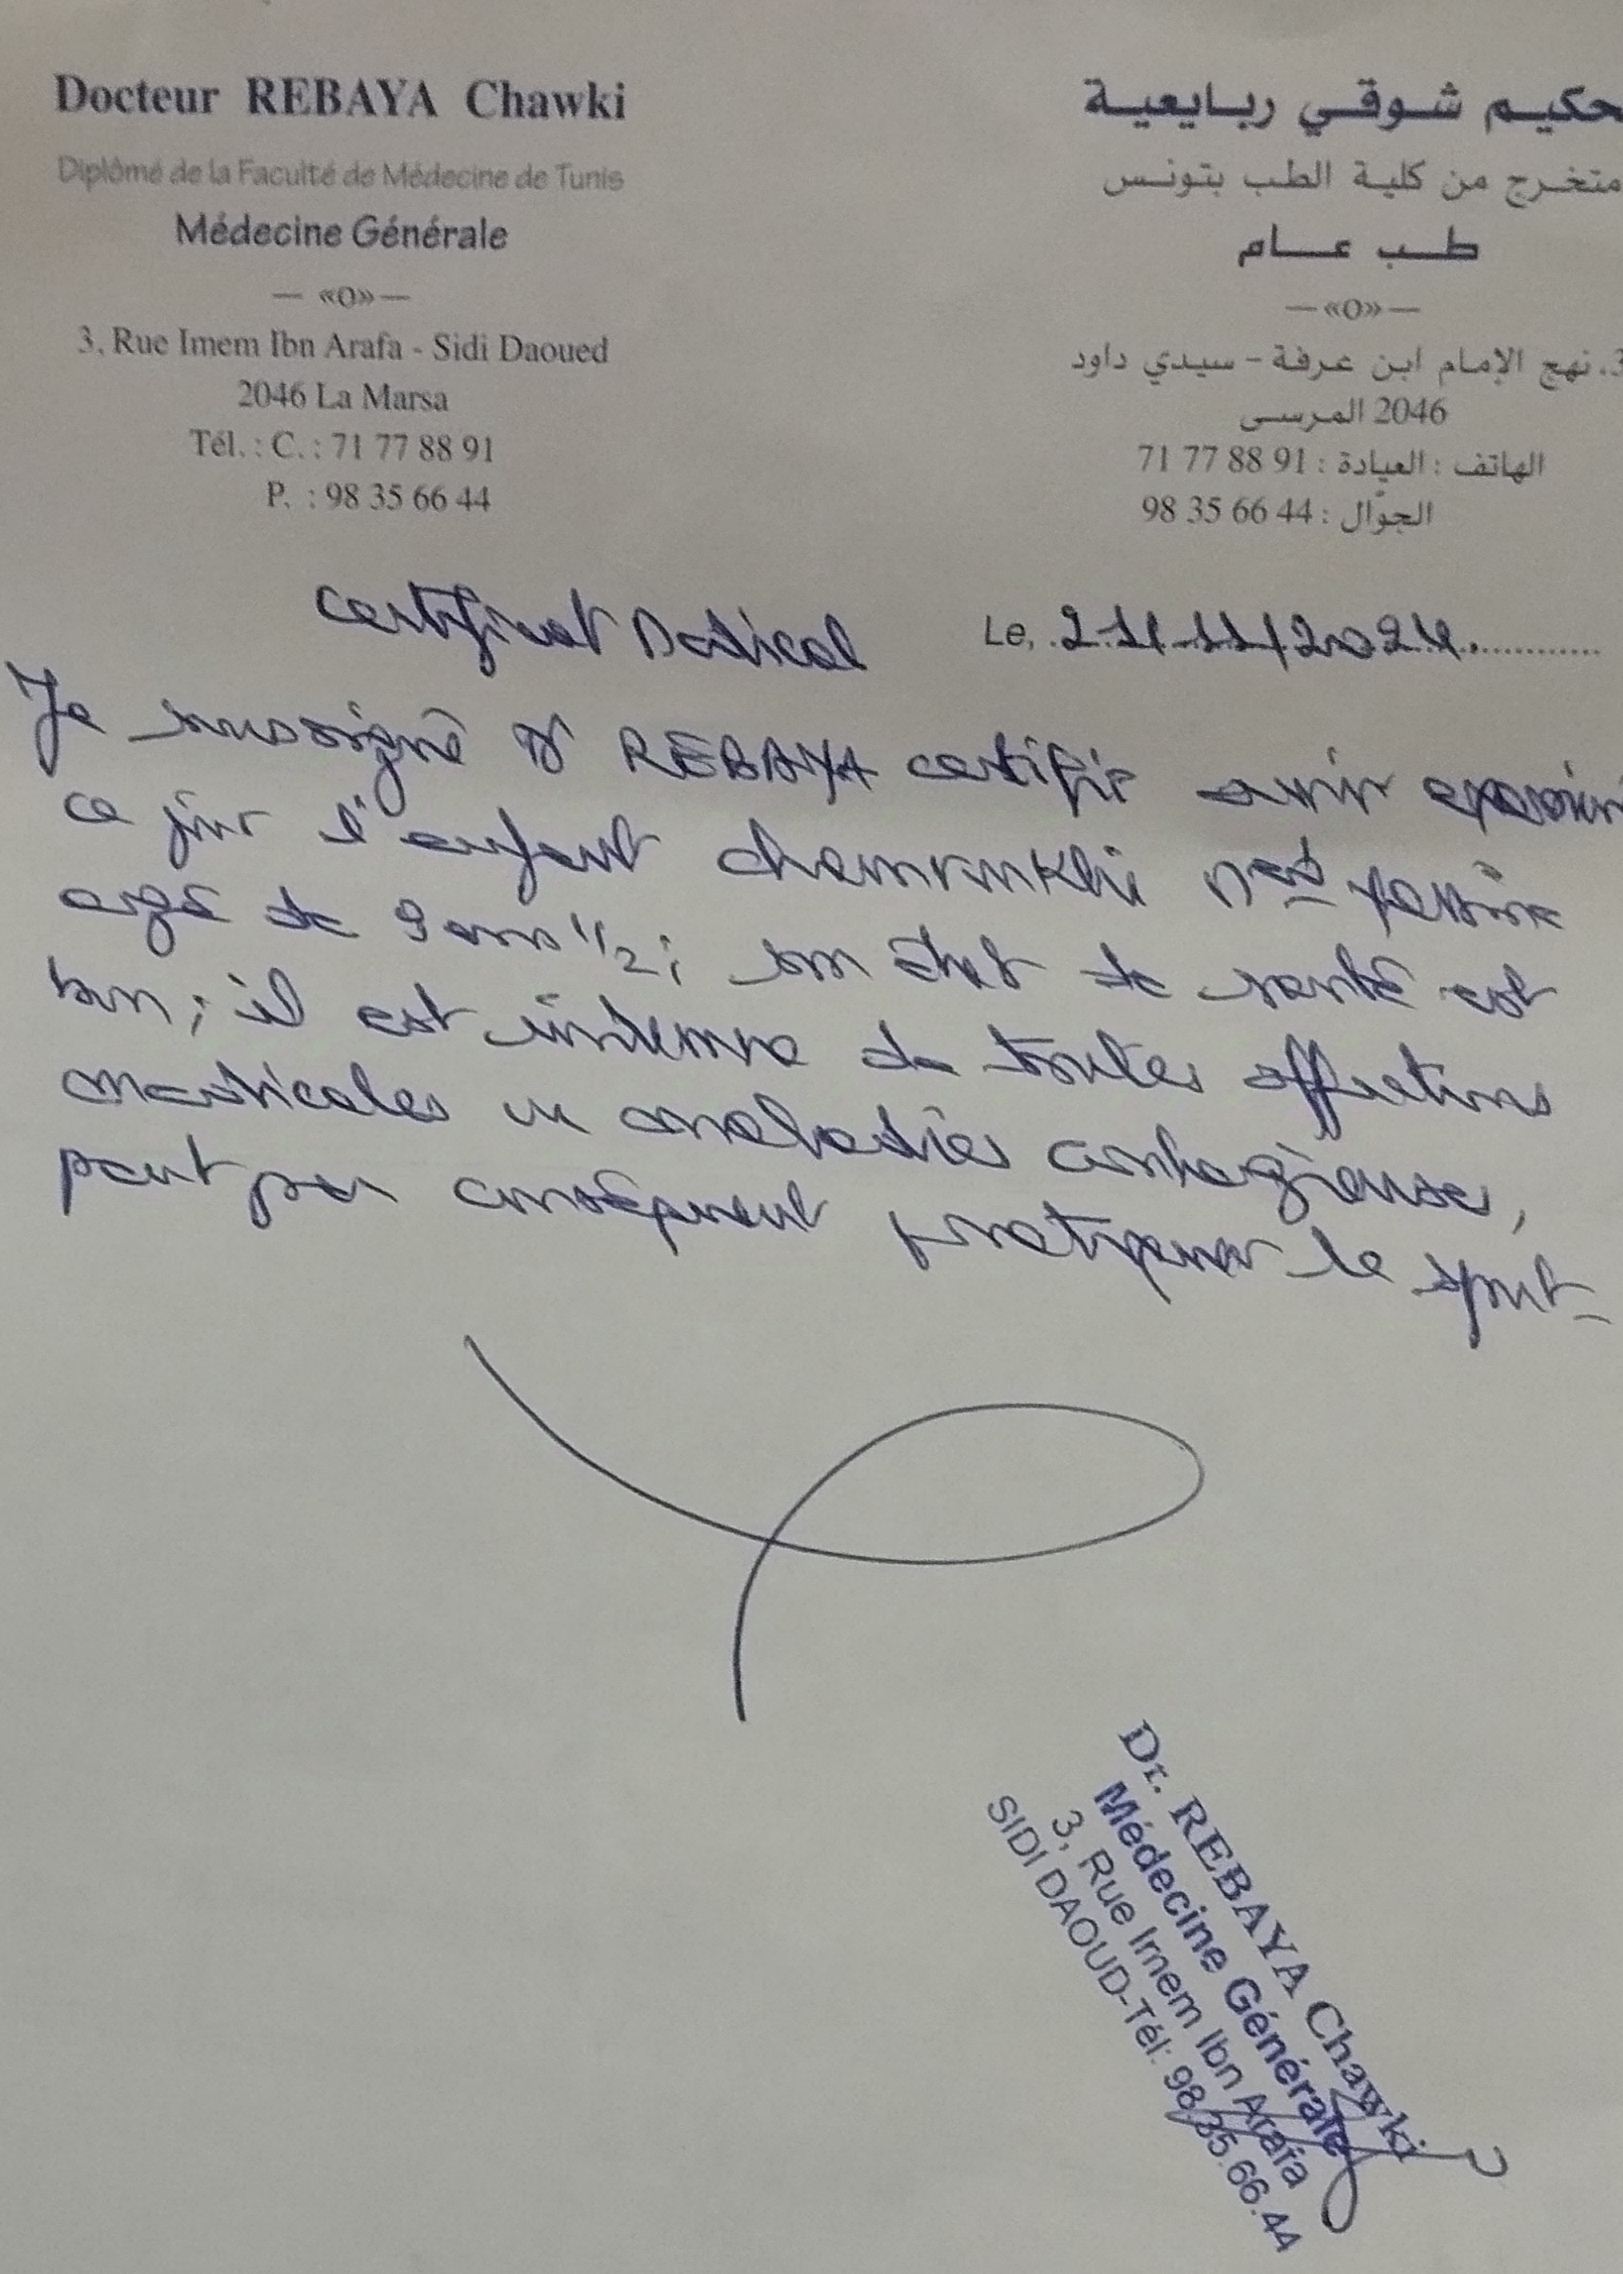 Docteur REBAYA Chawki
Diplômé de la Faculté de Médecine de Tunis
Médecine Générale
— «O» —
3, Rue Imem Ibn Arafa - Sidi Daoued
2046 La Marsa
Tél. : C. : 71 77 88 91
P. : 98 35 66 44
حكيم شوقي ربايعية
متخرج من كلية الطب بتونس
طب عام
— «O» —
3. نهج الإمام ابن عرفة - سيدي داود
2046 المرسى
الهاتف : العيادة : 71 77 88 91
الجوّال : 98 35 66 44
Certificat Médical
Le, 21/11/2024.
Je soussigné Dr REBAYA certifie avoir examiné
ce jour l'enfant Med Yassine
agé de 9 ans 1/2 ; son état de santé est
bon ; il est indemne de toutes affections
médicales ou maladies contagieuses,
peut par conséquent pratiquer le sport -
Dr. REBAYA Chawki
Médecine Générale
3, Rue Imem Ibn Arafa
SIDI DAOUD-Tél: 98.35.66.44